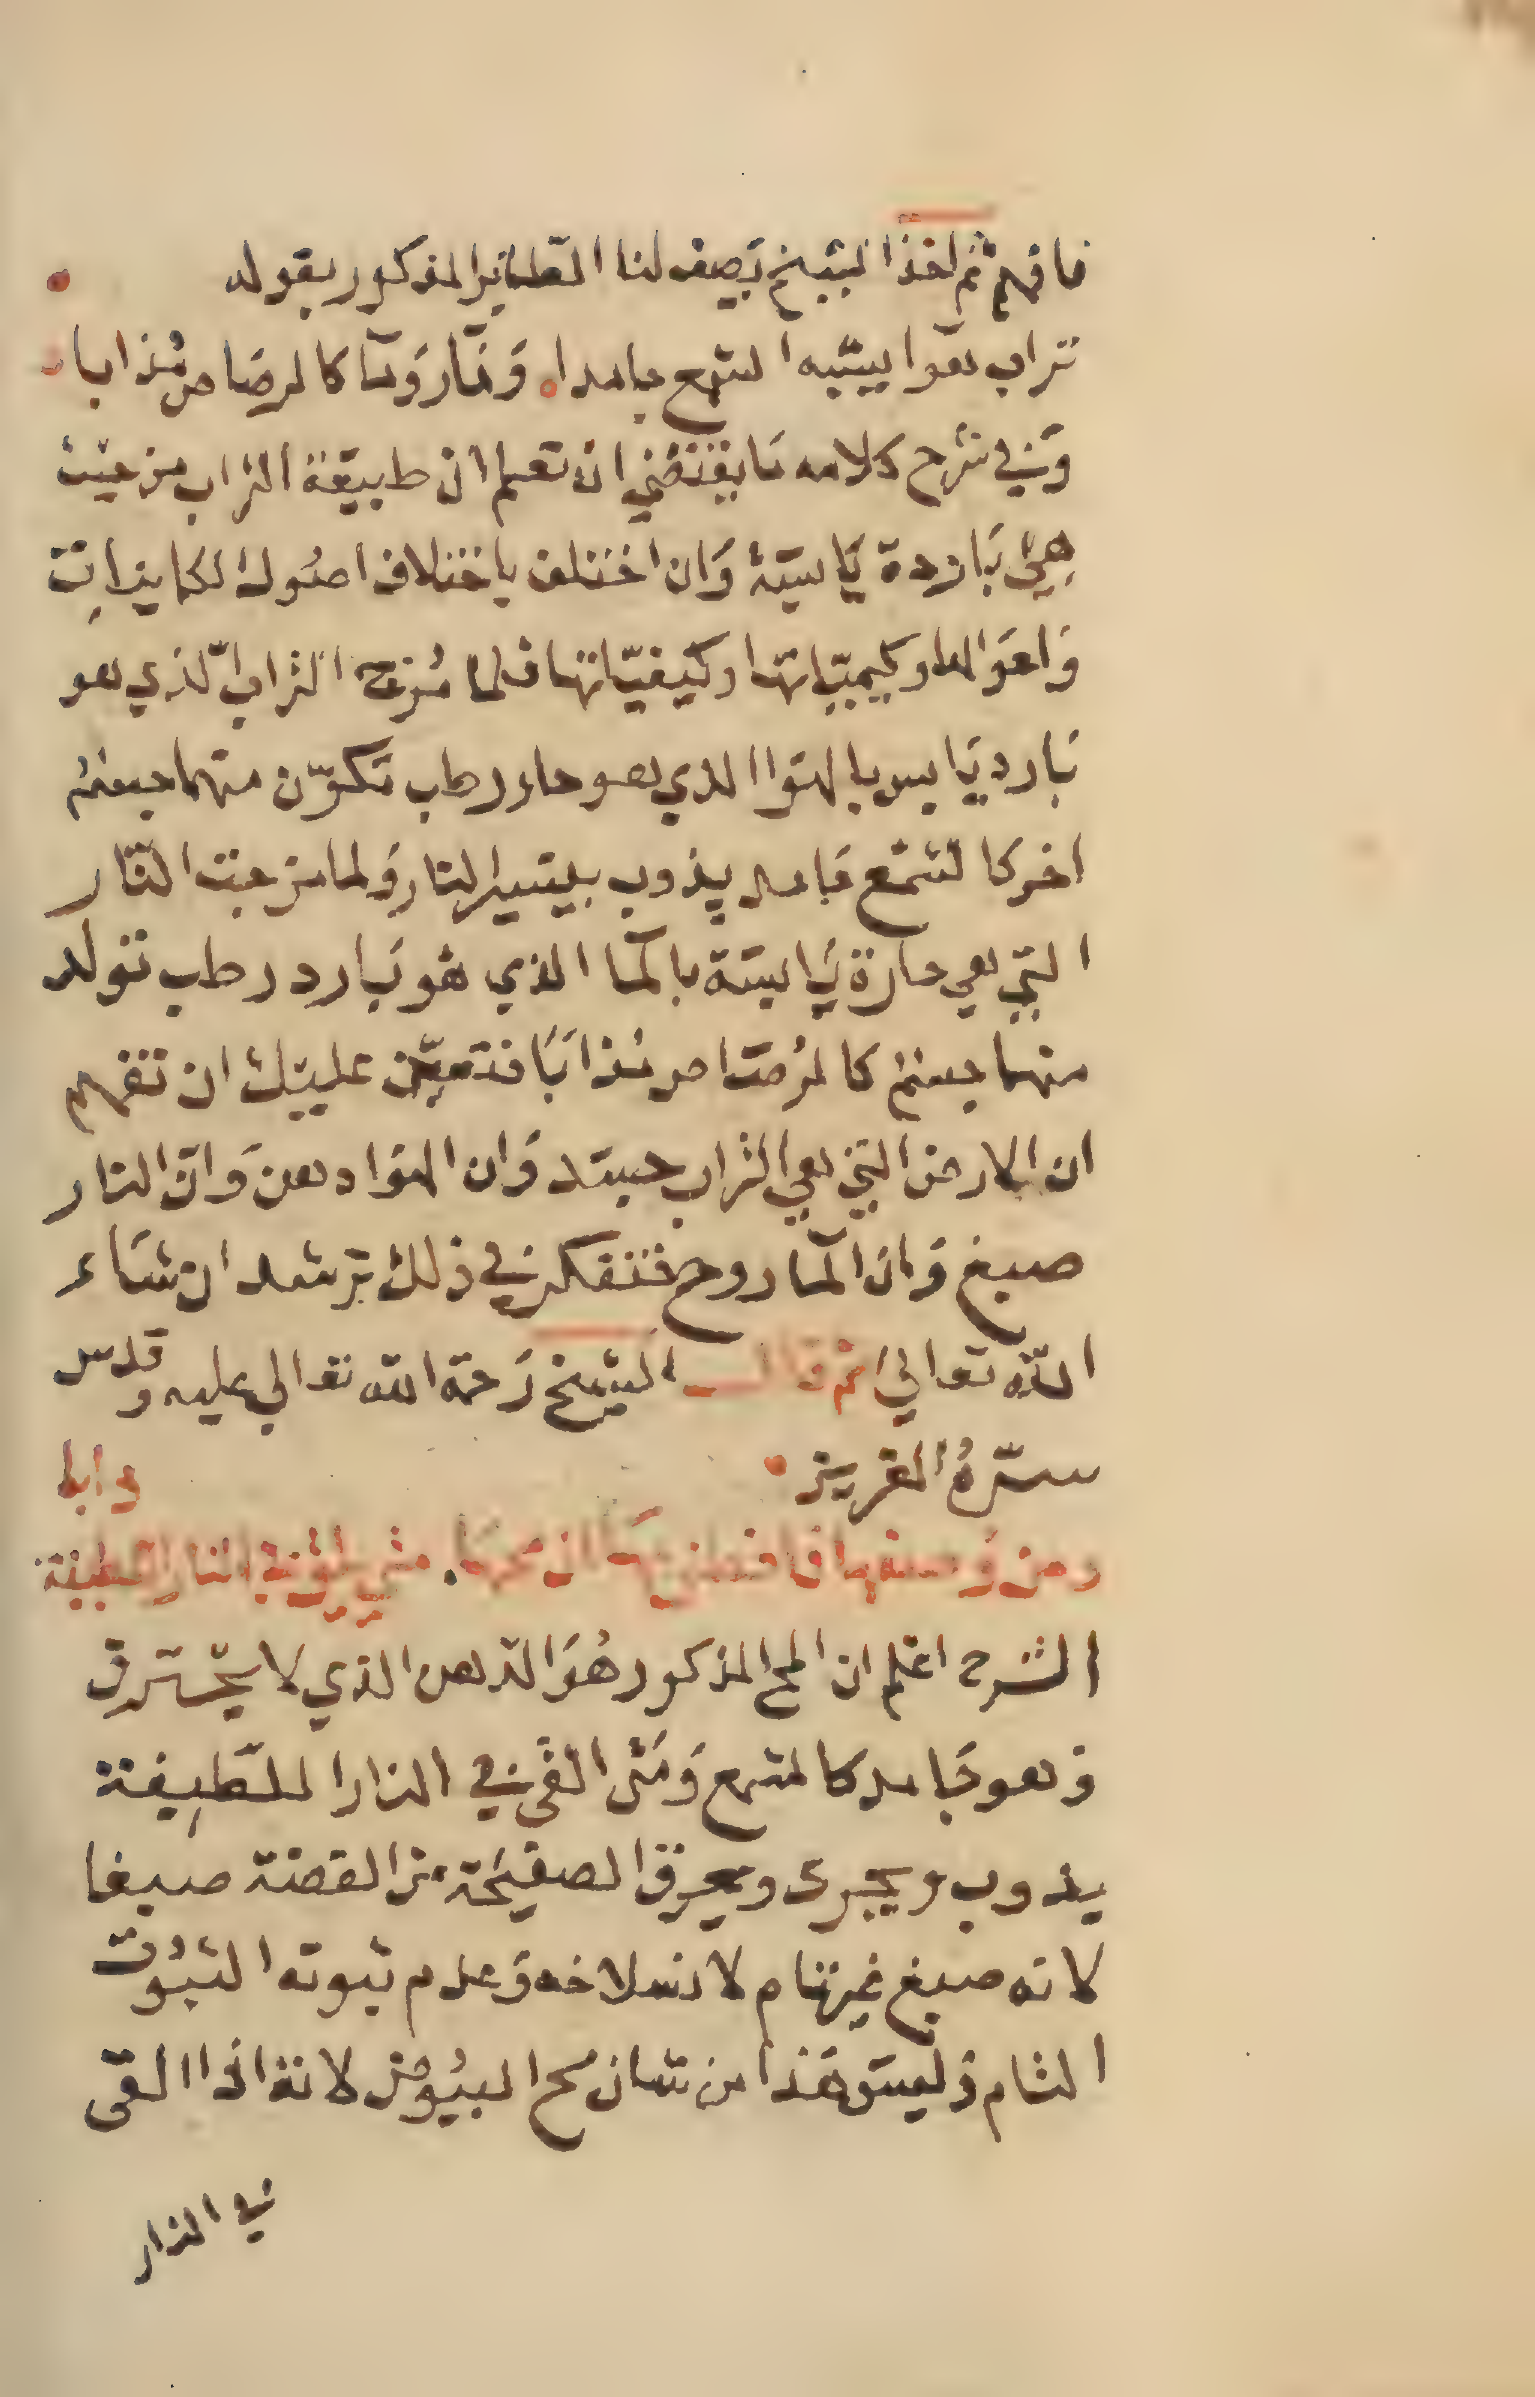 فافهم ثم اخذ الشيخ يصف لنا الطاير المذكور بقوله
تراب هوا يشبه الشمع جامدا ونار وما كالرصاص مذابا
وفي شرح كلامه ما يقتضي ان تعلم ان طبيعة التراب من حيث
هي باردة يابسة وان اختلف باختلاف اصول الكاينات
واحوالها وكيمياتها وكيفياتها فلما مزج التراب الذي هو
بارد يابس بالهوا الذي هو حار رطب تكون منهما جسم
اخر كالشمع جامد يذوب بيسير النار ولما مزجت النار
التي هي حارة يابسة بالما الذي هو بارد رطب تولد
منهما جسم كالرصاص مذابا فتعين عليك ان تفهم
ان الارض التي هي التراب جسد وان الهوا دهن وان النار
صبغ وان الما روح فتفكر في ذلك ترشد ان شاء
الله تعالي ثم قال الشيخ رحمة الله تعالي عليه وقدس
سره العزيز
ومن وصفها في النار اللطيفة
الشرح اعلم ان المح المذكور هو الدهن الذي لا يحترق
وهو جامد كالشمع ومتى القى في النار اللطيفة
يذوب ويجرى ويخرق الصفيحة من الفضة صبغا
لانه صبغ غير تام لانسلاخه وعدم ثبوته الثبوت
التام وليس هذا من شان مح البيوض لانه اذا القى
في النار